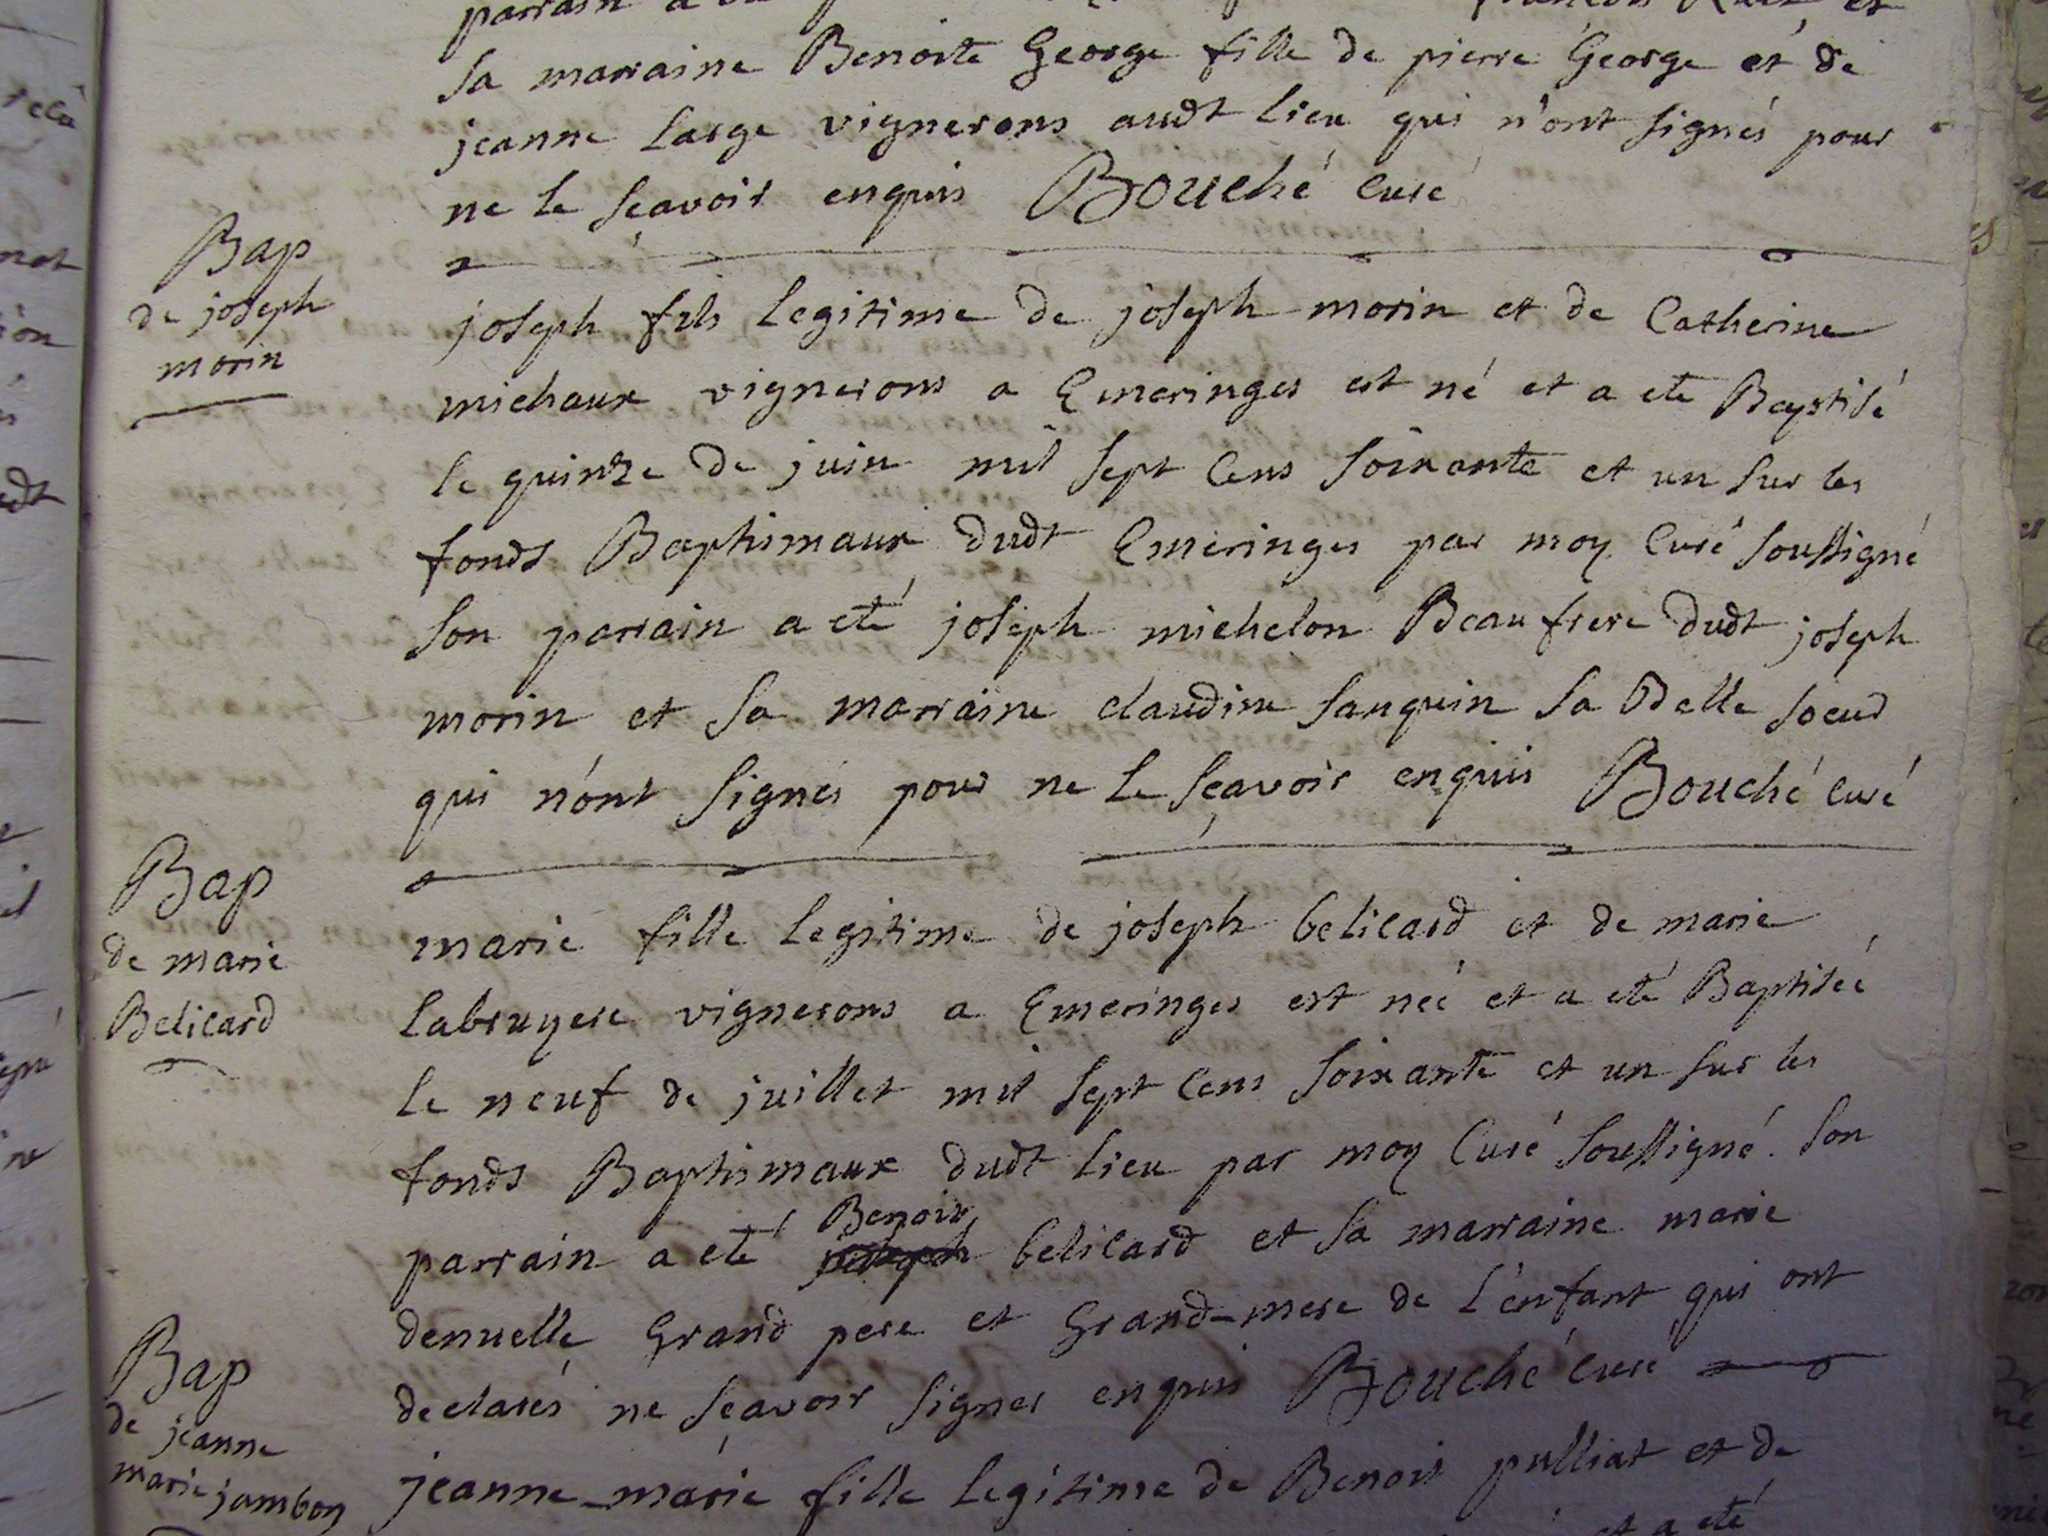 parrain a
sa marraine Benoite George fille de pierre George et de
jeanne Large vignerons audt lieu qui n'ont signés pour
ne le sçavoir enquis Bouché Curé
Bap
de joseph
morin
joseph fils legitime de joseph morin et de Catherine
michaux vignerons a Emeringes est né et a eté Baptisé
le quinze de juin mil sept Cens soixante et un sur les
fonds Baptismaux dudt Emeringes par moy Curé soussigné
son parrain a eté joseph michelon Beau frere dudt joseph
morin et sa marraine claudine sanquin sa Belle soeur
qui n'ont signés pour ne le sçavoir enquis Bouché Curé
Bap
de marie
Belicard
marie fille legitime de joseph belicard et de marie
Labruyere vignerons a Emeringes est née et a eté Baptisée
le neuf de juillet mil sept Cens soixante et un sur les
fonds Baptismaux dudt lieu par moy Curé soussigné. son
parrain a eté joseph Benoit belicard et sa marraine marie
denuelle Grand pere et Grand-mere de l'enfant qui ont
declarés ne sçavoir signer enquis Bouché Curé
Bap
de jeanne
marie jambon
jeanne-marie fille legitime de Benoit pulliat et de
et a eté